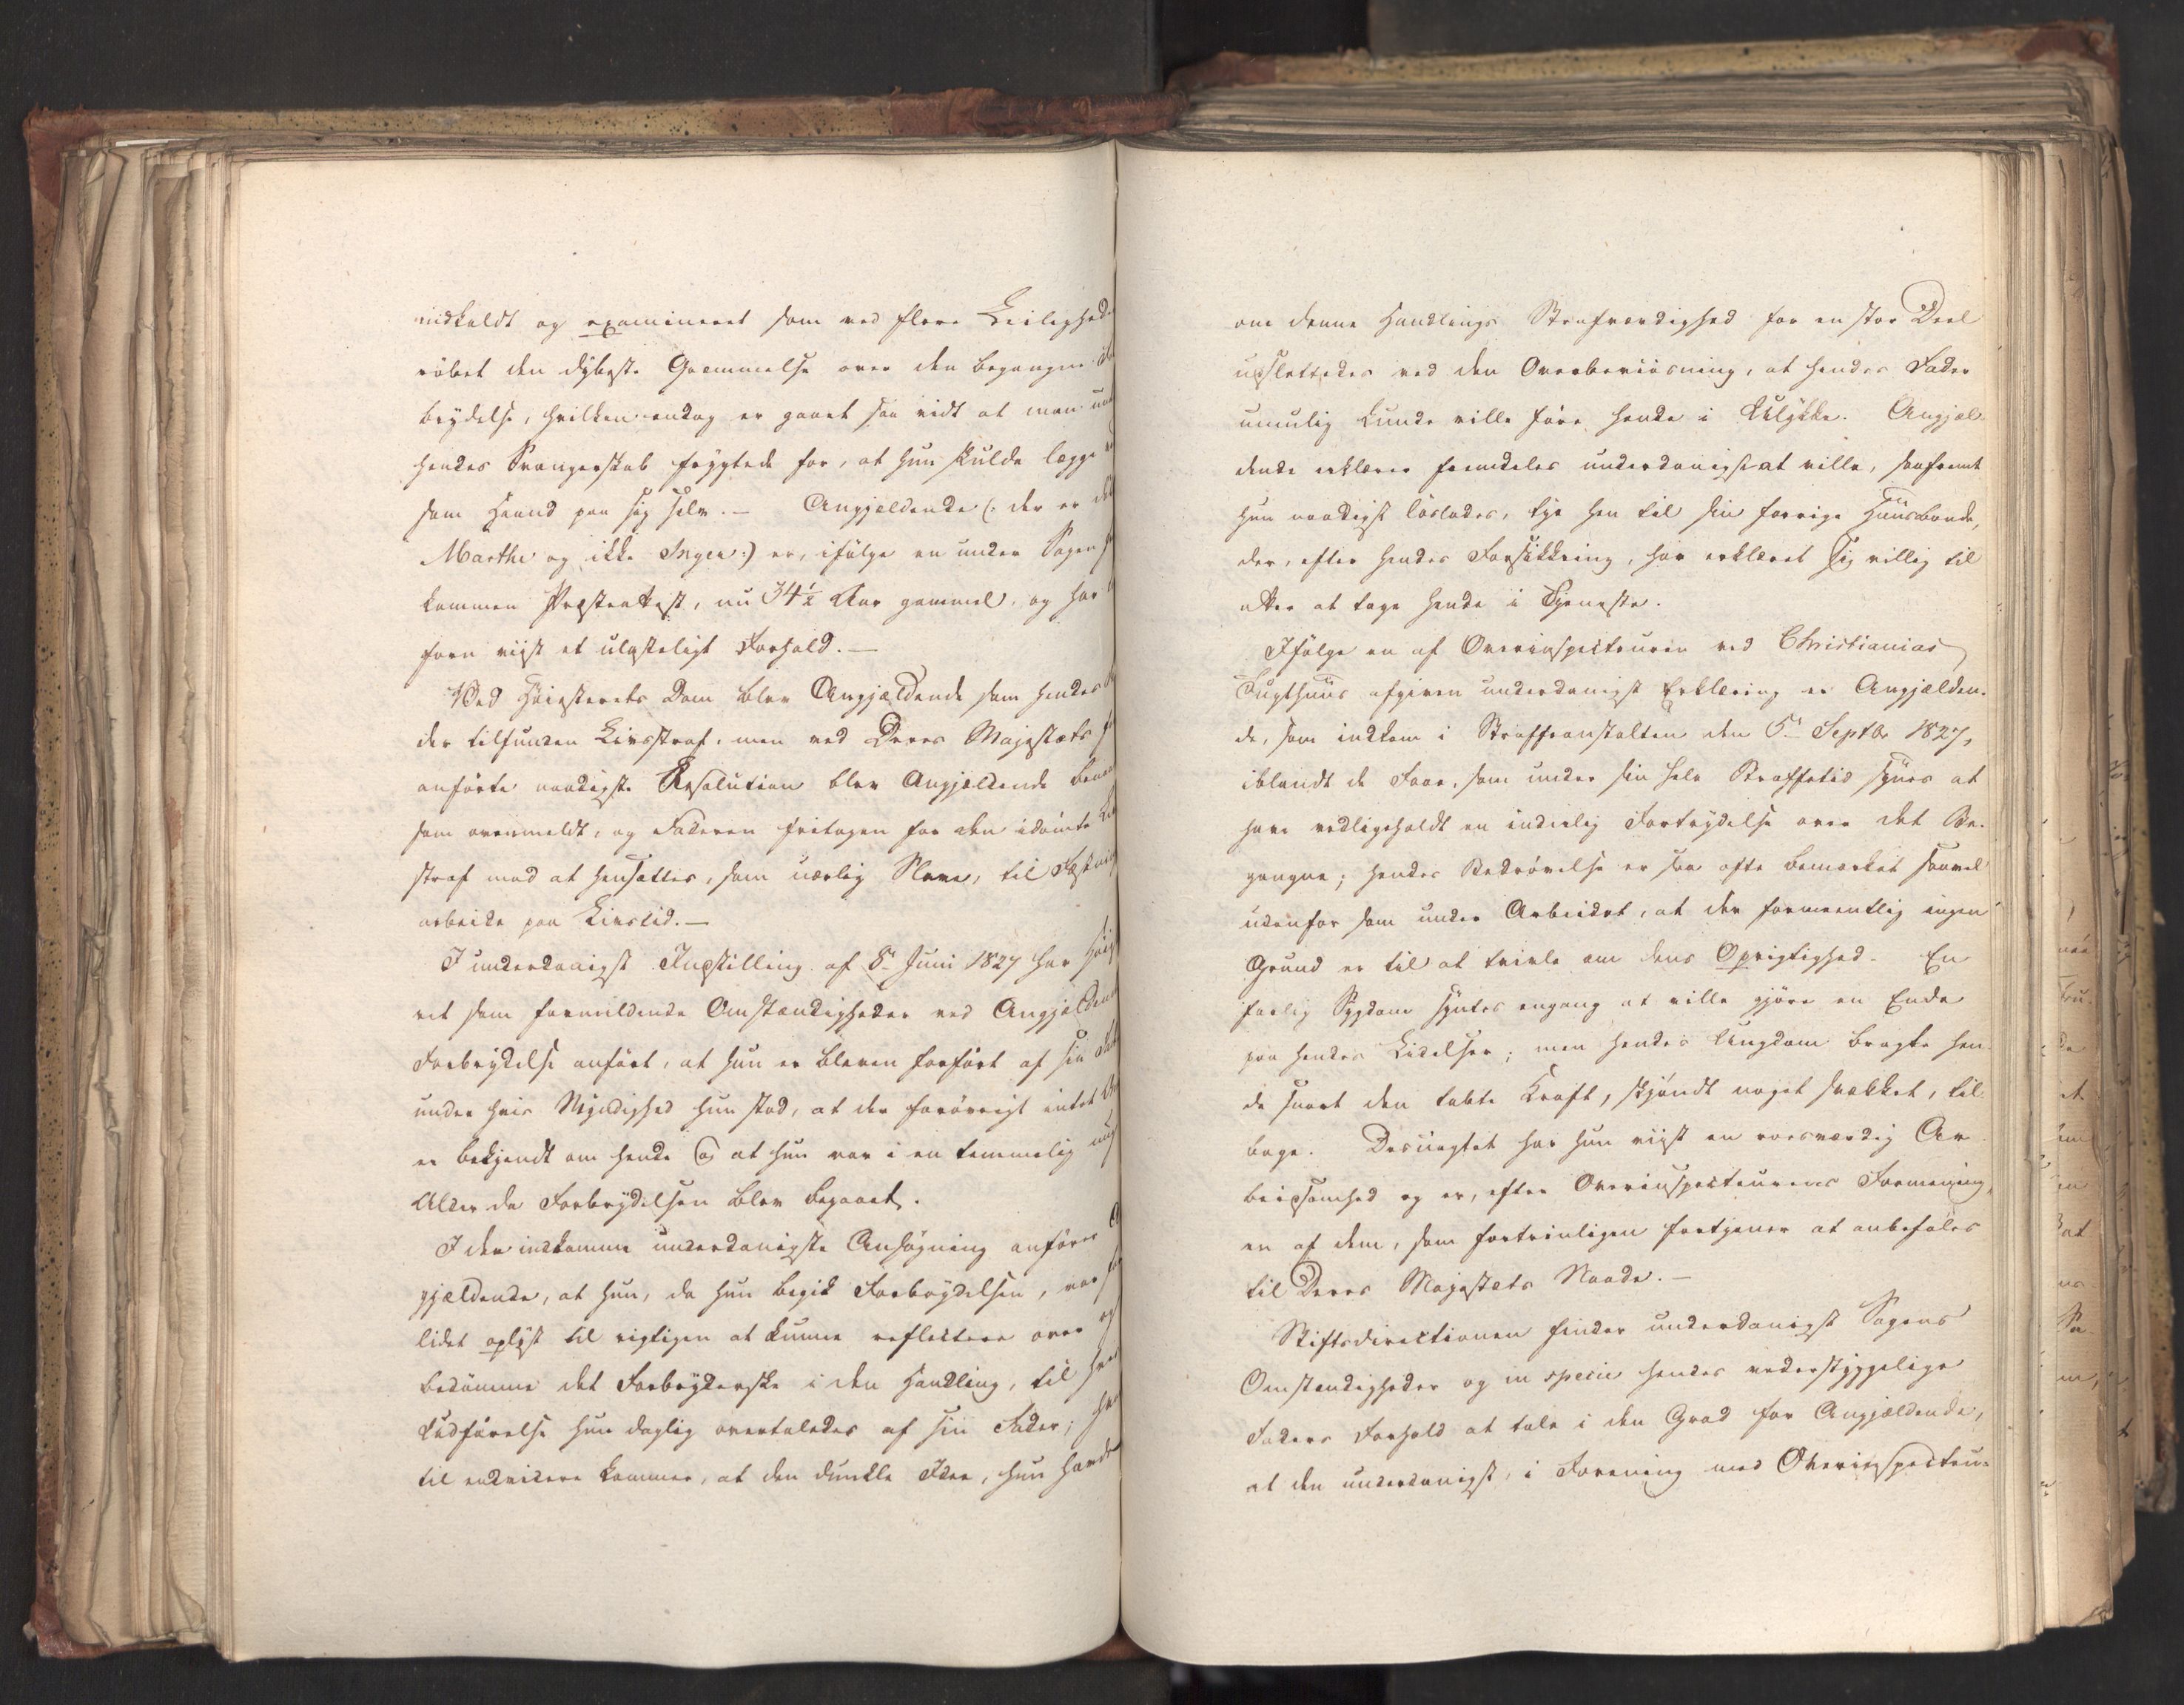 indkaldt og examineret som ved flere Leilighed
röbet den dybeste Græmmelse over den begangne
brydelse, hvilken endog er gaaet saa vidt at man
hendes Svangerskab frygtede for, at hun skulde lægge
som Haand paa sig selv. – Angjældende (: der er
Marthe og ikke Inger :) er, ifølge en under Sagen
kommen Præsteattest, nu 34½ Aar gammel, og har
forn viist et ulasteligt Forhold. –
Ved Höiesterets Dom blev Angjældende som hendes
der tilfunden Livsstraf, men ved Deres Majestæts
anførte naadigste Resolution blev Angjældende
som ovenmeldt, og Faderen fritagen for den idömte
straf mod at hensættes, som uærlig Slave, til
arbeide paa Livstid. –
I underdanigst Indstilling af 8de Juni 1827 har
ret som formildende Omstændigheder ved
Forbrydelse anfört, at hun er bleven forfört af sin
under hvis Myndighed hun stod, at der forövrigt intet
er bekjendt om hende og at hun var i en temmelig
Alder da Forbrydelsen blev begaaet.
I den indkomne underdanigste Ansögning anförer
gjældende, at hun, da hun begik Forbrydelsen, var
lidet oplyst til rigtigen at kunne reflectere over
bedömme det Forbryderske i den Handling, til
Udförelse hun daglig overtaledes af sin Fader;
til endvidere kommer, at den dunkle Idee, hun havde
om denne Handlings Strafværdighed for en stor Deel
udslettedes ved den Overbeviisning, at hendes Fader
umulig kunde ville före hende i Ulykke. Angjæl-
dende erklærer fremdeles underdanigst at ville, saafremt
hun naadigst löslades, tye hen til sin forrige Huusbonde,
der, efter hendes Forsikkring, har erklæret sig villig til
atter at tage hende i Tjeneste.
Ifølge en af Overinspecteuren ved Christianias
Tugthuus afgiven underdanigst Erklæring er Angjælden-
de, som indkom i Straffeanstalten den 5te Septbr 1827,
iblandt de Faae, som under sin hele Straffetid synes at
have vedligeholdt en inderlig Fortrydelse over det Be-
gangne; hendes Bedrövelse er saa ofte bemærket saavel
udenfor som under Arbeidet, at der formeentlig ingen
Grund er til at tvivle om dens Oprigtighed. En
farlig Sygdom syntes engang at ville gjöre en Ende
paa hendes Lidelser; men hendes Ungdom bragte hen-
de snart den tabte Kraft, skjöndt noget svækket, til-
bage. Desuagtet har hun viist en roesværdig Ar-
beidsomhed og er, efter Overinspecteurens Formening,
en af dem, som fortrinligen fortjener at anbefales
til Deres Majestæts Naade. –
Stiftsdirectionen finder underdanigst Sagens
Omstændigheder og in specie hendes vederstyggelige
Faders Forhold at tale i den Grad for Angjældende,
at den underdanigst, i Forening med Overinspecteu-